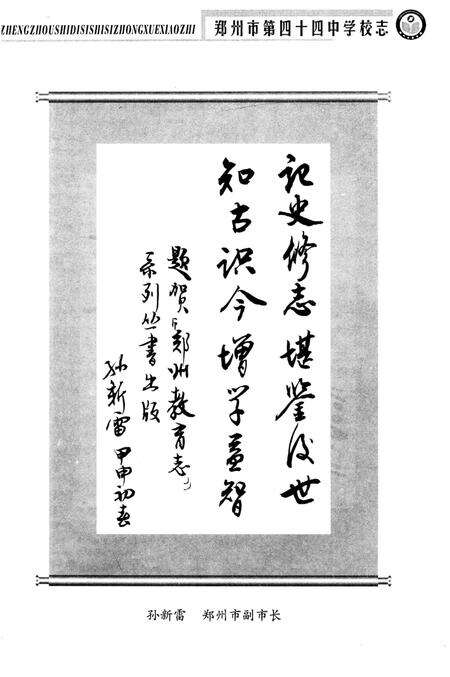 ZHENGZHOUSHIDISISHISIZHONGXUEXIAOZHI
郑州市第四十四中学校志
记史修志堪鉴后世
知古识今增学益智
题贺《郑州教育志》
系列丛书出版
孙新雷 甲申初春
孙新雷 郑州市副市长